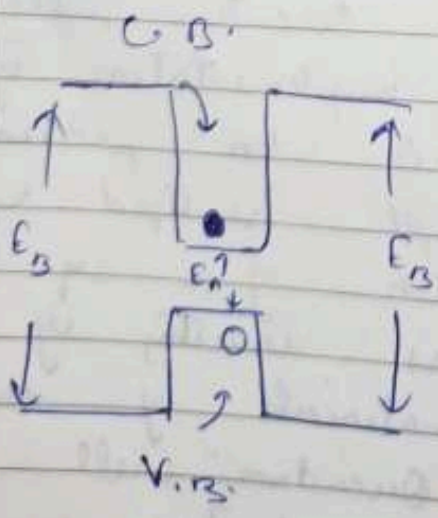 C. B.
E_B E_B
E_A
V.B.